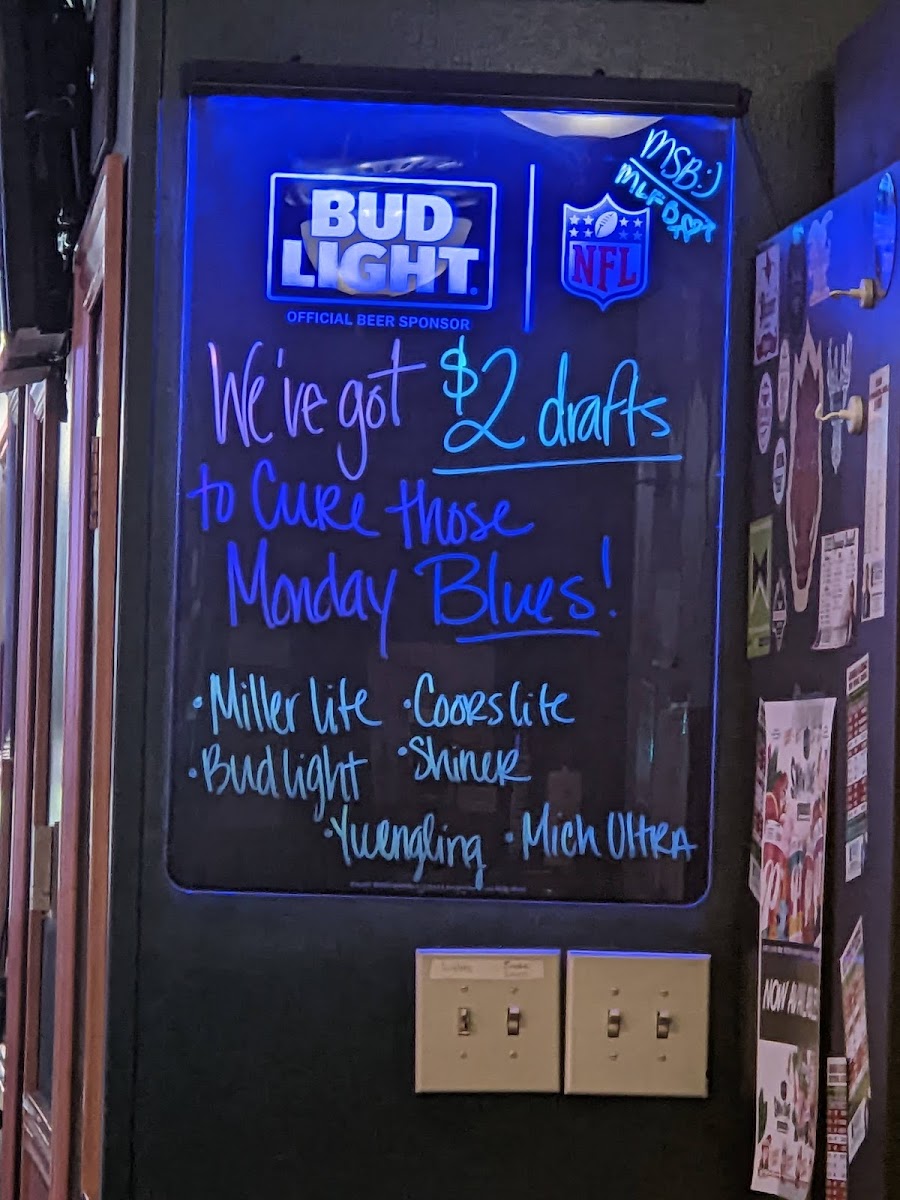 MSB:)
MLFB
BUD
LIGHT
OFFICIAL BEER SPONSOR
NFL
We've got $2 drafts
to Cure those
Monday Blues!
•Miller lite •Coors lite
•Bud light •Shiner
•Yuengling •Mich Ultra
NOW AVAILABLE